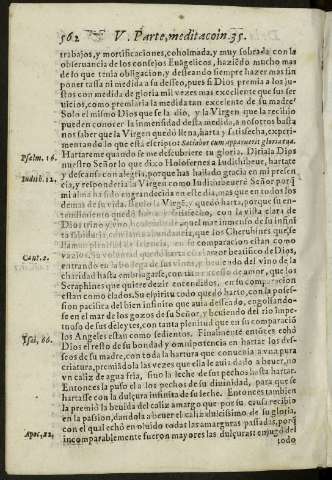 562 V. Parte, meditacoin 35.
trabajos, y mortificaciones, cō holmada, y muy sobrada con la
obseruancia de los consejos Euāgelicos, haziēdo mucho mas
de lo que tenia obligacion, y desseando siempre hazer mas sin
poner tassa ni medida a su desseo, pues si Dios premio a los jus-
tos con medida de gloria mil vezes mas excelente que sus ser
uicios, como premiaria la medida tan excelente de su madre?
Solo el mismo Dios que se la dio, y la Virgen que la recibio
pueden conocer la inmensidad desta medida, a nosotros basta
nos saber que la Virgen quedó llena, harta y satisfecha, experi-
mentando lo que está escripto: Satiabor cum apparuerit gloria tua.
Psalm. 16. Hartareme quando se me descubriere tu gloria. Diriala Dios
nuestro Señor lo que dixo Holofernes a Iudich: beue, hartate
Iudith. 12. y descansa con alegria, porque has hallado gracia en mi presen
cia, y responderia la Virgen como Iudith: beueré Señor porq̄
mi alma ha sido engrandecida en este dia, mas que en todos los
demas de su vida. Beuio la Virgē, y quedó harta, porque su en-
tendimiento quedó harto y satisfecho, con la vista clara de
Dios trino y vno,
ta sabiduria, con que los Cherubines que se
llaman plenitud de sciencia, en su comparacion estan como
Cant. 2. vazios. Su voluntad quedó harta con el amor beatifico de Dios,
entrando en la bodega de sus vinos, y beuiendo del vino de la
charidad hasta embriagarse, con de amor, que los
Seraphines que quiere dezir encendidos, en su comparacion
estan como elados. Su espiritu todo quedó harto, con la posses-
sion pacifica del bien infinito que auia desseado, engolfando-
se en el mar de los gozos de su Señor, y beuiendo del rio impe-
tuoso de sus deleytes, con tanta plenitud que en su comparació
los Angeles estan como sedientos. Finalmente entōces echó
Ysai. 66. Dios el resto de su bondad y omnipotencia en hartar los des-
seos de su madre, con toda la hartura que conuenia a vna pura
criatura, premiādola las vezes que ella le auia dado a beuer, no
vn caliz de agua fria, sino la leche de sus pechos hasta hartar.
Entonces la puso el a los pechos de su diuinidad, para que se
hartasse con la dulçura infinita de su leche. Entonces tambien
la premió la beuida del caliz amargo que por su causa recibio
en la passion, dandola a beuer el caliz dulcissimo de su gloria,
con el qual echó en oluido todas las amarguras passadas, porq̄
Apoc. 22. incomparablemente fueron mayores las dulçuras: enjugó del
todo